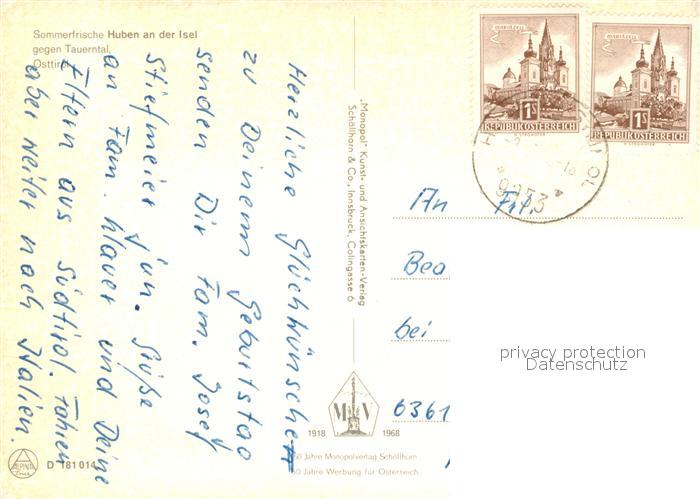 Sommerfrische Huben an der Isel
gegen Tauerntal,
Osttirol
Herzliche Glückwünsche
zu Deinem Geburtstag
senden Dir Fam. Josef
Stiefmeier jun. Grüße
an Fam. Hauer und Deine
Eltern aus Südtirol. Fahren
aber weiter nach Italien.
"Monopol" Kunst- und Ansichtskarten-Verlag
Schöllhorn & Co., Innsbruck, Colingasse 6
MARIAZELL
1S
REPUBLIK ÖSTERREICH
MARIAZELL
1S
REPUBLIK ÖSTERREICH
An Frl.
Bea
bei
6361
privacy protection
Datenschutz
M V
1918 1968
50 Jahre Monopolverlag Schöllhorn
50 Jahre Werbung für Österreich
ALPINA
D 181 014